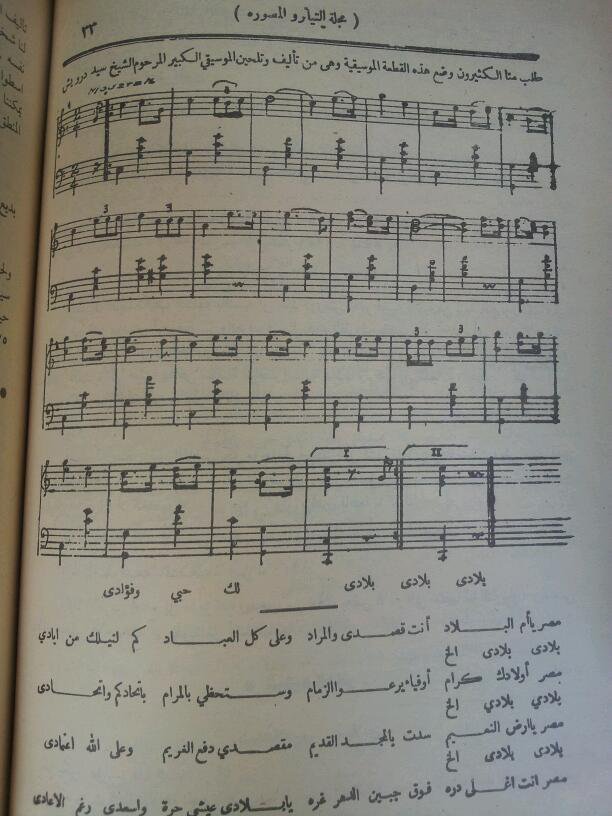 ( مجلة التياترو المسوره )
٣٣
طلب منا الكثيرون وضع هذه القطعة الموسيقية وهى من تأليف وتلحين الموسيقي الكبير المرحوم الشيخ سيد درويش
3
3 3
3 3
I II
بلادى بلادى بلادى لك حبي وفؤادى
مصر ياأم البـــلاد أنت قصــدى والمراد وعلى كل العبـــاد كم لنيلك من ايادي
بلادى بلادى الخ
مصر أولادك كرام أوفياء يرعــوا الزمام وســتحظي بالمرام باتحادكم واتحــادى
بلادي بلادي الخ
مصر ياارض النعــيم سدت بالمجــد القديم مقصــدي دفع الغريم وعلى الله اعتمادى
بلادى بلادى الخ
مصر انت اغــلى دره فوق جبين الدهر غره يابــلادى عيشي حرة واسعدى رغم الاعادى